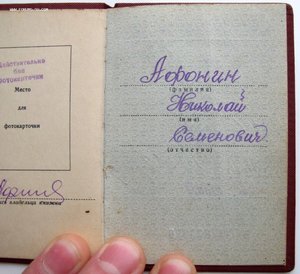 Действительно
без
фотокарточки
Место
для
фотокарточки
Афонин
(фамилия)
Николай
(имя)
Семенович
(отчество)